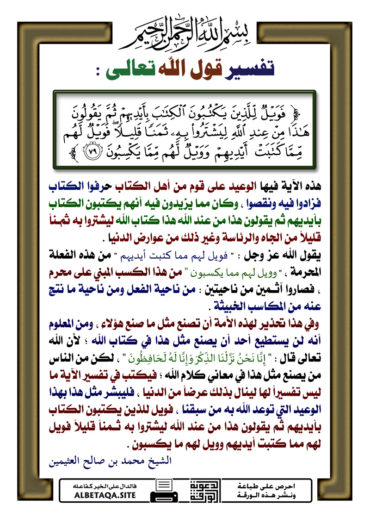 بسم الله الرحمن الرحيم
تفسير قول الله تعالى :
﴿ فَوَيْلٌ لِّلَّذِينَ يَكْتُبُونَ ٱلْكِتَٰبَ بِأَيْدِيهِمْ ثُمَّ يَقُولُونَ
هَٰذَا مِنْ عِندِ ٱللَّهِ لِيَشْتَرُوا۟ بِهِۦ ثَمَنًا قَلِيلًا ۖ فَوَيْلٌ لَّهُم
مِّمَّا كَتَبَتْ أَيْدِيهِمْ وَوَيْلٌ لَّهُم مِّمَّا يَكْسِبُونَ ٧٩ ﴾
هذه الآية فيها الوعيد على قوم من أهل الكتاب حرفوا الكتاب
فزادوا فيه ونقصوا ، وكان مما يزيدون فيه أنهم يكتبون الكتاب
بأيديهم ثم يقولون هذا من عند الله هذا كتاب الله ليشتروا به ثمناً
قليلاً من الجاه والرئاسة وغير ذلك من عوارض الدنيا .
يقول الله عز وجل : " فويل لهم مما كتبت أيديهم " من هذه الفعلة
المحرمة ، " وويل لهم مما يكسبون " من هذا الكسب المبني على محرم
، فصاروا آثمين من ناحيتين : من ناحية الفعل ومن ناحية ما نتج
عنه من المكاسب الخبيثة .
وفي هذا تحذير لهذه الأمة أن تصنع مثل ما صنع هؤلاء ، ومن المعلوم
أنه لن يستطيع أحد أن يصنع مثل هذا في كتاب الله ؛ لأن الله
تعالى قال : " إِنَّا نَحْنُ نَزَّلْنَا الذِّكْرَ وَإِنَّا لَهُ لَحَافِظُونَ " ، لكن من الناس
من يصنع مثل هذا في معاني كلام الله ؛ فيكتب في تفسير الآية ما
ليس تفسيراً لها لينال بذلك عرضاً من الدنيا ، فليبشر مثل هذا بهذا
الوعيد التي توعد الله به من سبقنا ، فويل للذين يكتبون الكتاب
بأيديهم ثم يقولون هذا من عند الله ليشتروا به ثمناً قليلاً فويل
لهم مما كتبت أيديهم وويل لهم ما يكسبون .
الشيخ محمد بن صالح العثيمين
احرص على طباعة
ونشر هذه الورقة
دعوية
الورقة
فالدال على الخير كفاعله
ALBETAQA.SITE